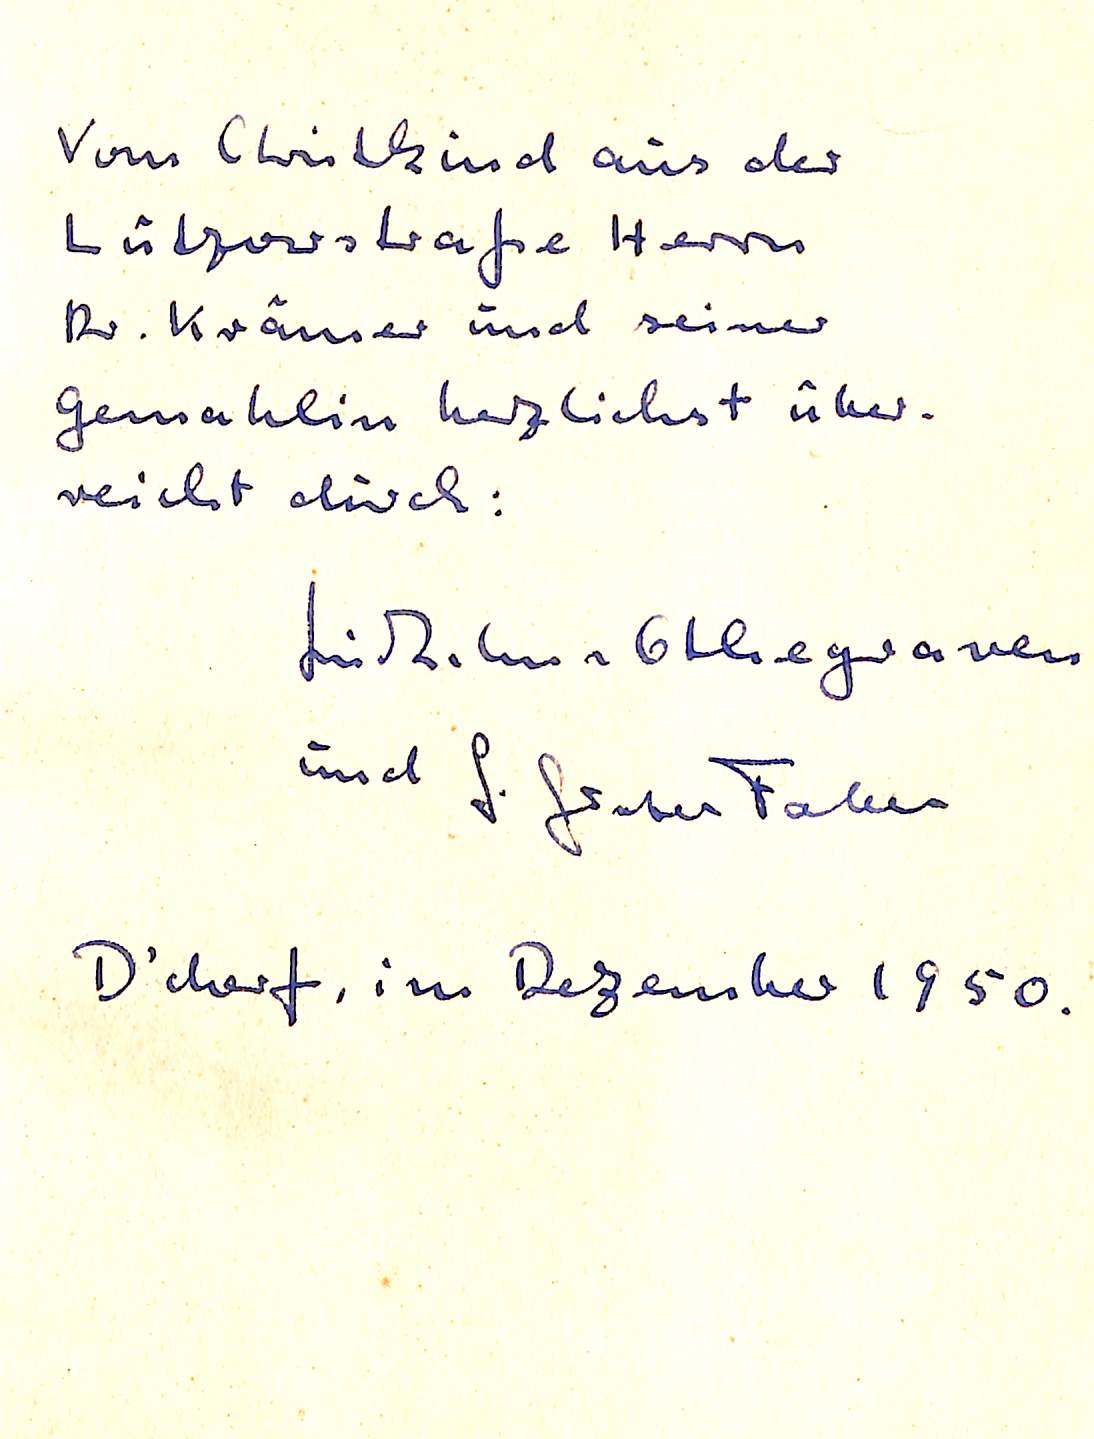 Vom Christkind aus der
Lützowstraße Herrn
Dr. Krämer und seiner
Gemahlin herzlichst über-
reicht durch:
Othegraven
und G. Faber
D'dorf, im Dezember 1950.